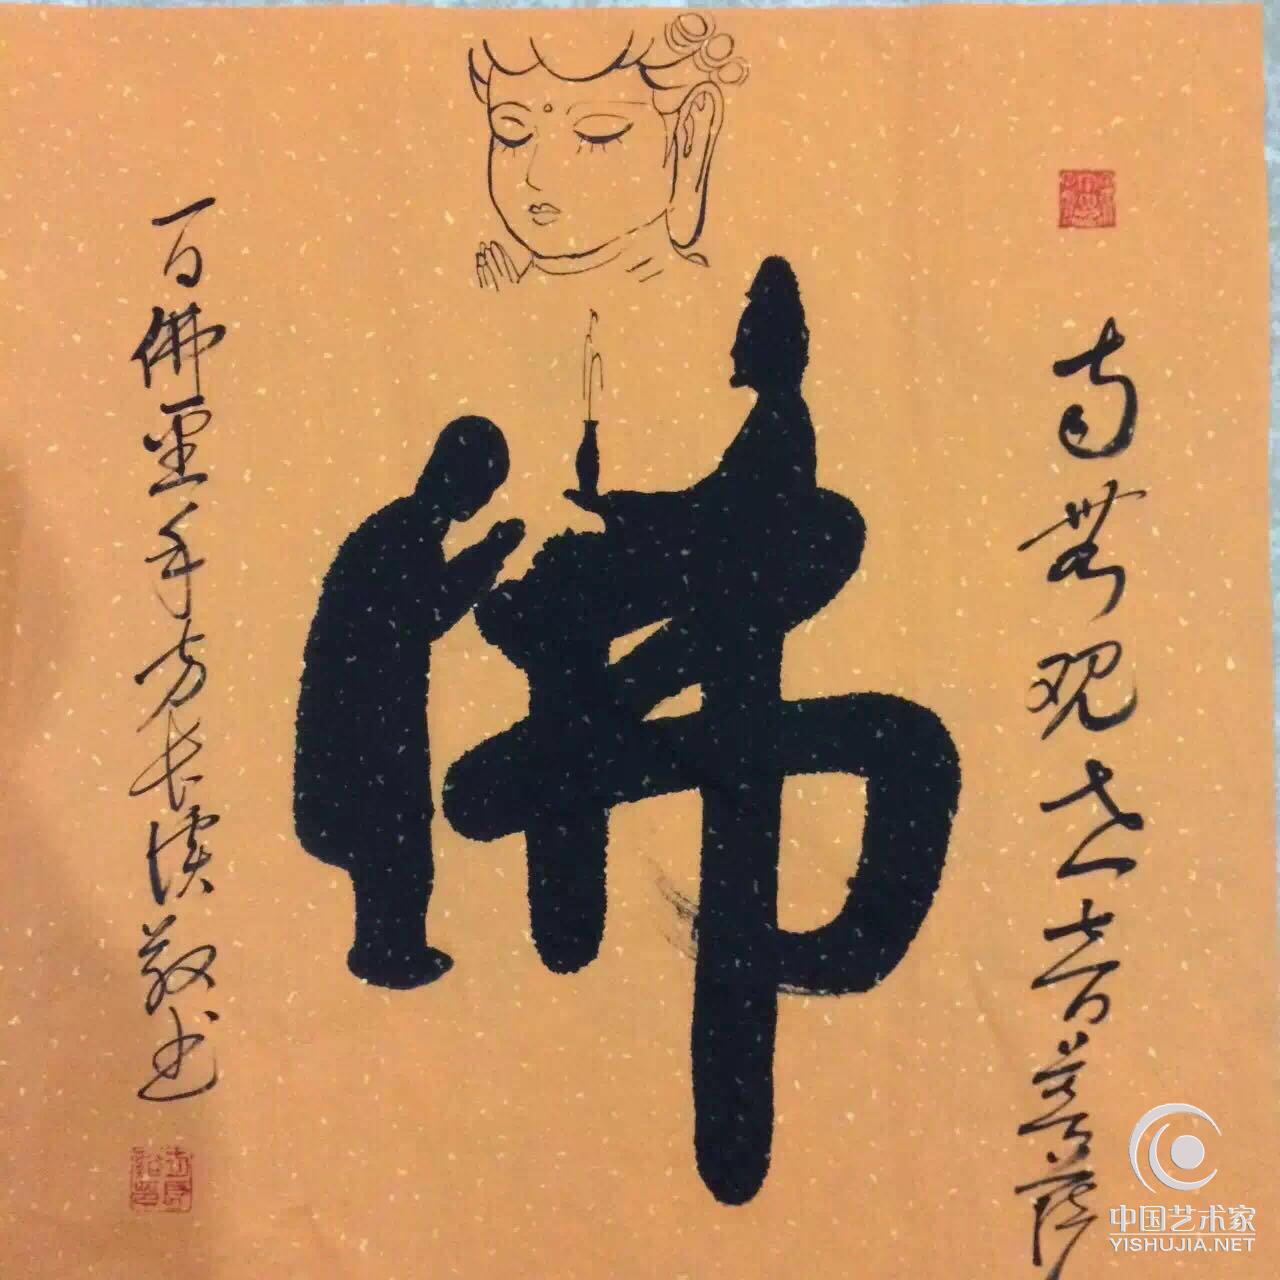 南無观世音菩萨
佛
百佛圣手方长溪敬书
中国艺术家
YISHUJIA.NET